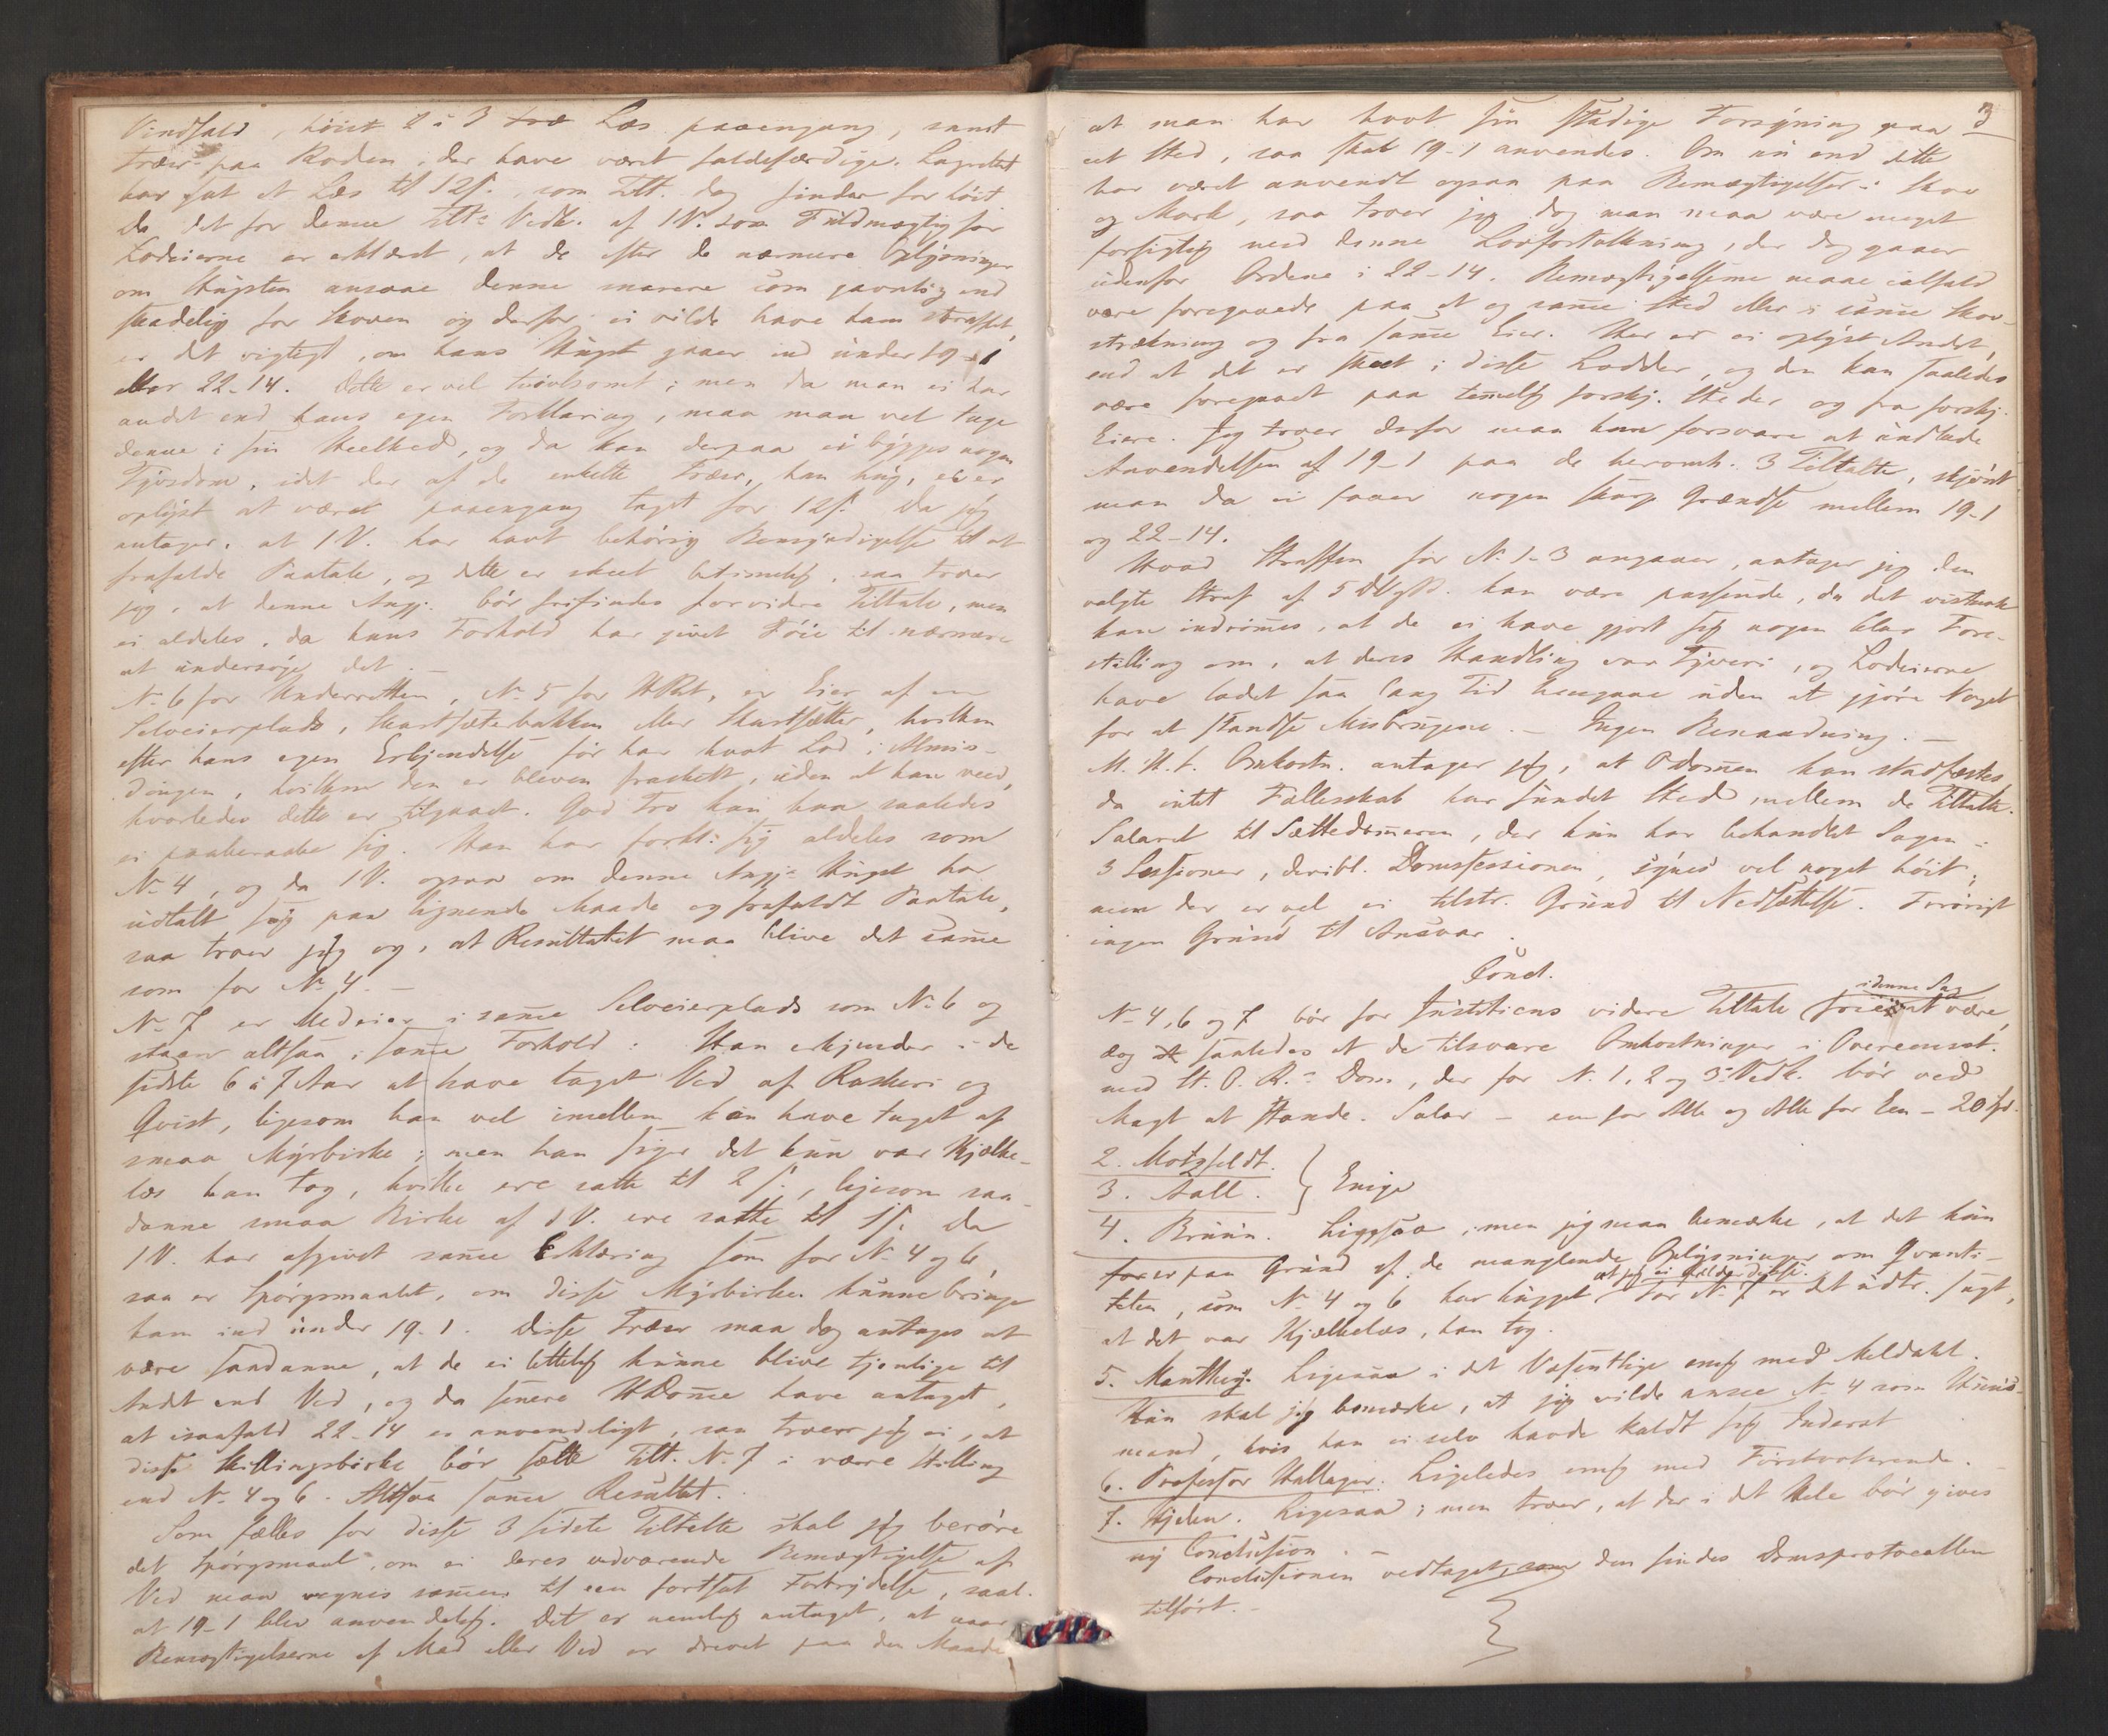 Vindfald, höist 2 à 3 Læs paaengang, samt
Træer paa Roden, der have været faldefærdige. Lagretten
har sat et Læs til 12 s., som Tilt. dog finder for höit
da det for denne Tilt's Vedk. af 1 V. som Fuldmægtig for
Lodeierne er erklæret, at de efter de nærmere Oplysninger
om Hugsten ansaae denne snarere som gavnlig end
skadelig for Skoven og derfor ei vilde have ham straffet,
er det vigtigt, om hans Hugst gaaer ind under 19-1
eller 22-14. Dette er vel tvivlsomt; men da man ei har
andet end hans egen Forklaring, maa man vel tage
denne i sin Heelhed, og da kan derpaa ei bygges nogen
Tyvsdom, idet der af de enkelte Træer, han hug, ei er
oplyst at været paaengang taget for 12 s. Da jeg
antager, at 1 V. har havt behörig Bemyndigelse til at
frafalde Paatale, og dette er skeet betimelig, saa troer
jeg, at denne Angj. bör frifindes for videre Tiltale, men
ei aldeles, da hans Forhold har givet Föie til nærmere
at undersöge det. —
No 6 for Underretten, No 5 for HRet, er Eier af en
Selveierplads, Skartsæterbakken eller Skartsætter, hvilken
efter hans egen Erkjendelse för har havt Lod i Almin-
dingen, hvilken den er bleven fraskilt, uden at han veed,
hvorledes dette er tilgaaet. God Tro kan han saaledes
ei paaberaabe sig. Han har forkl: sig aldeles som
No 4, og da 1 V. ogsaa om denne Angj's Hugst har
udtalt sig paa lignende Maade og frafaldt Paatale,
saa troer jeg og, at Resultatet maa blive det samme
som for No 4. —
No 7 er Medeier i samme Selveierplads som No 6 og
staaer altsaa i samme Forhold: Han erkjender i de
sidste 6 à 7 Aar at have taget Ved af Raskeri og
Qvist, ligesom han vel imellem kan have taget af
smaa Myrbirke; men han siger det kun var Kjælke-
læs han tog, hvilke ere satte til 2 s., ligesom saa-
danne smaa Birke af 1 V. ere satte til 1 s. Da
1 V. har afgivet samme Erklæring som for No 4 og 6,
saa er Spörgsmaalet, om disse Myrbirker kunne bringe
ham ind under 19-1. Disse Træer maa dog antages at
være saadanne, at de ei lettelig kunne blive tjenlige til
Andet end Ved, og da senere HDomme have antaget,
at isaafald 22-14 er anvendeligt, saa troer jeg ei, at
disse Skillingsbirke bör sætte Tilt. No 7 i værre Stilling
end No 4 og 6. Altsaa samme Resultat.
Som fælles for disse 3 sidste Tiltalte skal jeg beröre
det Spörgsmaal, om ei deres vedvarende Bemægtigelse af
Ved maa regnes sammen til een fortsat Forbrydelse, saal.
at 19-1 blev anvendelig. Det er nemlig antaget, at naar
Bemægtigelserne af Mad eller Ved er drevet paa den Maade
3
at man har havt sin stadige Forsyning paa
eet Sted, saa skal 19-1 anvendes. Om nu end dette
har været anvendt ogsaa paa Bemægtigelser i Skov
og Mark, saa troer jeg dog man maa være meget
forsigtig med denne Lovfortolkning, der dog gaaer
udenfor Ordene i 22-14. Bemægtigelserne maae ialfald
være foregaaede paa et og samme Sted eller i samme Skov-
strækning og fra samme Eier. Her er ei oplyst Andet,
end at det er skeet i disse Lodder, og den kan saaledes
være foregaaet paa temmelig forskj. Steder og fra forskj.
Eiere. Jeg troer derfor man kan forsvare at undlade
Anvendelsen af 19-1 paa de heromh. 3 Tiltalte, skjönt
man da ei faaer nogen skarp Grændse mellem 19-1
og 22-14.
Hvad Straffen for No 1-3 angaaer, antager jeg den
valgte Straf af 5 D V og B. kan være passende, da det vistnok
kan indrömmes, at de ei have gjort sig nogen klar Fore-
stilling om, at deres Handling var Tyveri, og Lodeierne
have ladet saa lang Tid hengaae uden at gjöre Noget
for at standse Misbrugene. — Ingen Benaadning. —
M. H. t. Omkostn. antager jeg, at ODommen kan stadfæstes
da intet Fællesskab har fundet Sted mellem de Tiltalte.
Salaret til Sættedommeren, der kun har behandlet Sagen i
3 Sessioner, deribl. Domssessionen, synes vel noget höit;
men der er vel ei tilstr. Grund til Nedsættelse. Forövrigt
ingen Grund til Ansvar.
Concl.
i denne Sag
No 4, 6 og 7 bör for Justitiens videre Tiltale frie at være,
dog saaledes at de tilsvare Omkostninger i Overeensst.
med St. O. R.s Dom, der for No 1, 2 og 3s Vedk. bör ved
Magt at stande. Salar — een for Alle og Alle for Een — 20 Spd.
2. Motzfeldt.
3. Aall. } Enige
4. Bruun. Ligesaa, men jeg maa bemærke, at det kun
er paa Grund af de manglende Oplysninger om Qvanti-
at jeg ei fælder disse.
teten, som No 4 og 6 har hugget. For No 7 er det udtr. sagt,
at det var Kjælkelæs, han tog.
5. Manthey. Ligesaa i det Væsentlige enig med Meldahl.
Kun skal jeg bemærke, at jeg vilde ansee No 4 som Huus-
mand, hvis han ei selv havde kaldt sig Inderst
6. Professor Hallager. Ligeledes enig med Förstvoterende.
7. Hjelm. Ligesaa; men troer, at der i det Hele bör gives
ny Conclusion. —
Conclusionen vedtaget, som den findes Domsprotocollen
tilfört. —